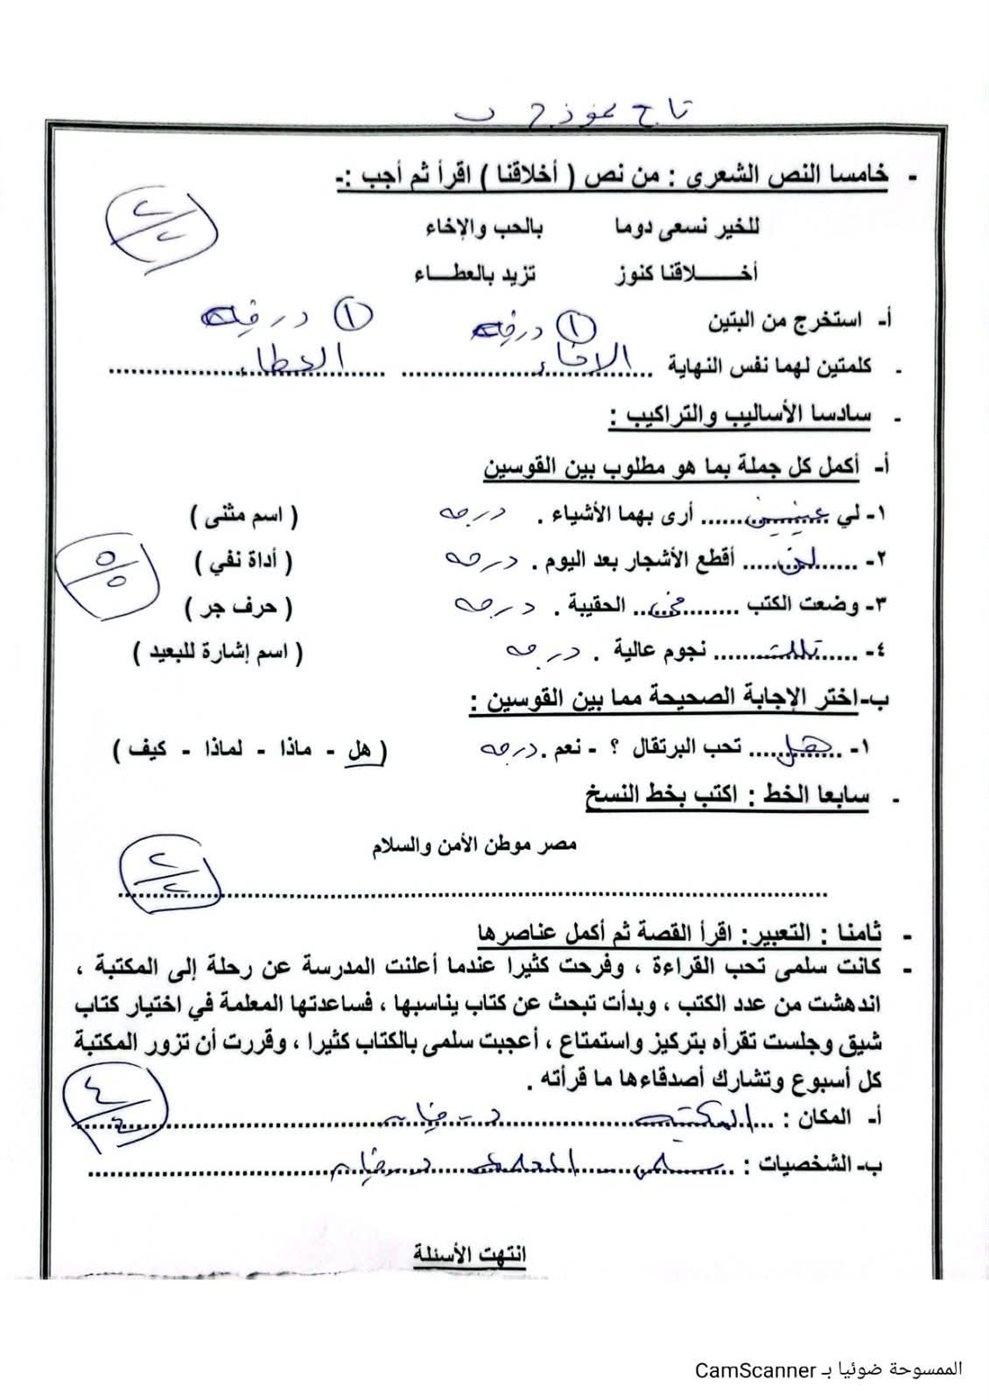 تابع نموذج ب
- خامسا النص الشعرى : من نص ( أخلاقنا ) اقرأ ثم أجب :-
٢/٢
للخير نسعى دوما بالحب والإخاء
أخـــــلاقنا كنوز تزيد بالعطـــاء
أ- استخرج من البتين ١ درجة ١ درجة
- كلمتين لهما نفس النهاية الاخاء العطاء
- سادسا الأساليب والتراكيب :
أ- أكمل كل جملة بما هو مطلوب بين القوسين
١- لي عينين أرى بهما الأشياء . درجه ( اسم مثنى )
٢- لن أقطع الأشجار بعد اليوم . درجه ( أداة نفي )
٥/٥
٣- وضعت الكتب في الحقيبة . درجه ( حرف جر )
٤- تلك نجوم عالية . درجه ( اسم إشارة للبعيد )
ب-اختر الإجابة الصحيحة مما بين القوسين :
١- هل تحب البرتقال ؟ - نعم . درجه ( هل - ماذا - لماذا - كيف )
- سابعا الخط : اكتب بخط النسخ
مصر موطن الأمن والسلام
٢/٢
- ثامنا : التعبير: اقرأ القصة ثم أكمل عناصرها
- كانت سلمى تحب القراءة ، وفرحت كثيرا عندما أعلنت المدرسة عن رحلة إلى المكتبة ،
اندهشت من عدد الكتب ، وبدأت تبحث عن كتاب يناسبها ، فساعدتها المعلمة في اختيار كتاب
شيق وجلست تقرأه بتركيز واستمتاع ، أعجبت سلمى بالكتاب كثيرا ، وقررت أن تزور المكتبة
كل أسبوع وتشارك أصدقاءها ما قرأته .
٤/٤
أ- المكان : المكتبه درجتان
ب- الشخصيات : سلمى المعلمة درجتان
انتهت الأسئلة
الممسوحة ضوئيا بـ CamScanner